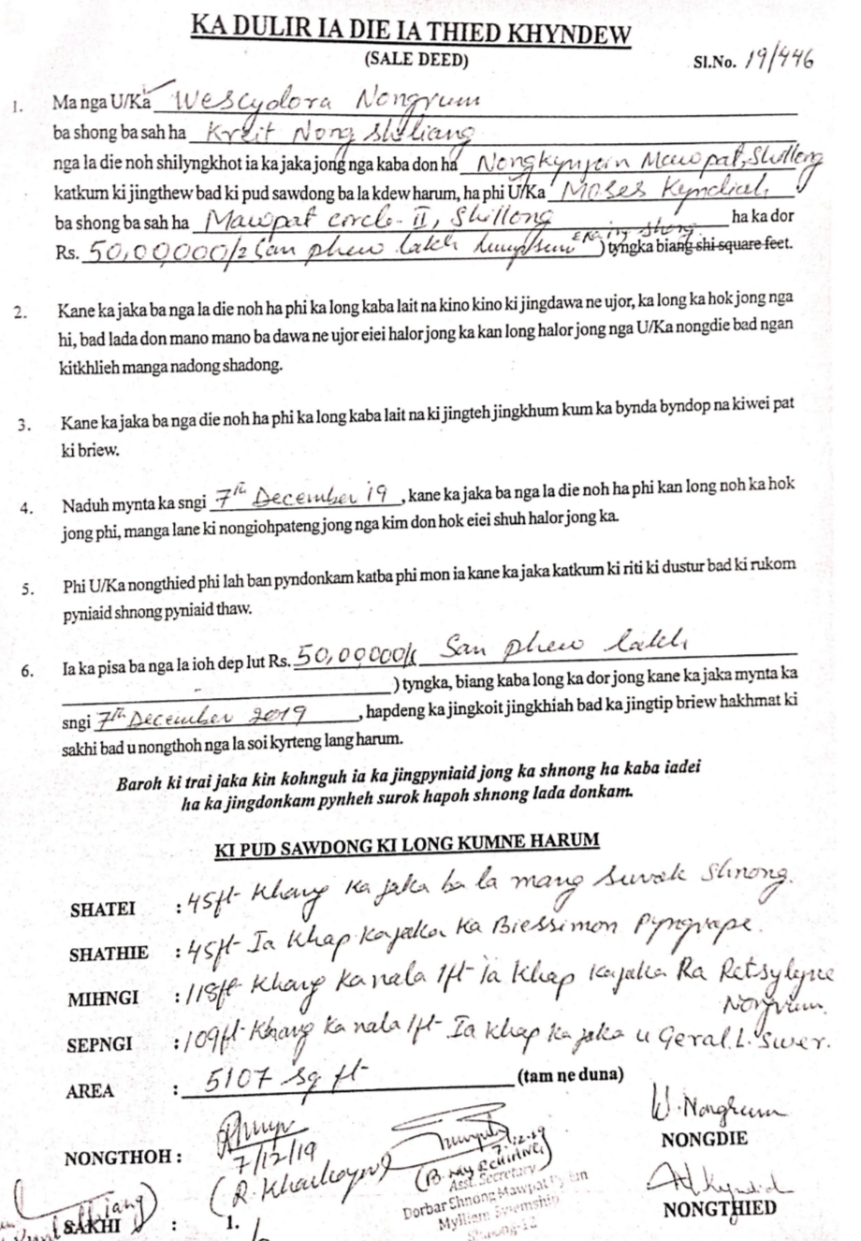 KA DULIR IA DIE IA THIED KHYNDEW
(SALE DEED)
Sl.No. 19/446
1. Ma nga U/Ka Wescydora Nongrum
ba shong ba sah ha Kreit Nong Shiliang
nga la die noh shilyngkhot ia ka jaka jong nga kaba don ha Nongkynjoin Mawpat, Shillong
katkum ki jingthew bad ki pud sawdong ba la kdew harum, ha phi U/Ka Moses Kyndiah,
ba shong ba sah ha Mawpat circle-II, Shillong ha ka dor
Rs. 50,00000/- San phew lakh lumpsum ) tyngka biang shi square feet.
2. Kane ka jaka ba nga la die noh ha phi ka long kaba lait na kino kino ki jingdawa ne ujor, ka long ka hok jong nga
hi, bad lada don mano mano ba dawa ne ujor eiei halor jong ka kan long halor jong nga U/Ka nongdie bad ngan
kitkhlieh manga nadong shadong.
3. Kane ka jaka ba nga die noh ha phi ka long kaba lait na ki jingteh jingkhum kum ka bynda byndop na kiwei pat
ki briew.
4. Naduh mynta ka sngi 7th December 19 , kane ka jaka ba nga la die noh ha phi kan long noh ka hok
jong phi, manga lane ki nongiohpateng jong nga kim don hok eiei shuh halor jong ka.
5. Phi U/Ka nongthied phi lah ban pyndonkam katba phi mon ia kane ka jaka katkum ki riti ki dustur bad ki rukom
pyniaid shnong pyniaid thaw.
6. Ia ka pisa ba nga la ioh dep lut Rs. 50,00000/- San phew lakh,
- ) tyngka, biang kaba long ka dor jong kane ka jaka mynta ka
sngi 7th December 2019 , hapdeng ka jingkoit jingkhiah bad ka jingtip briew hakhmat ki
sakhi bad u nongthoh nga la soi kyrteng lang harum.
Baroh ki trai jaka kin kohnguh ia ka jingpyniaid jong ka shnong ha kaba iadei
ha ka jingdonkam pynheh surok hapoh shnong lada donkam.
KI PUD SAWDONG KI LONG KUMNE HARUM
SHATEI : 45ft Khang Ka jaka ba la mang Surok Shnong.
SHATHIE : 45ft Ia Khap Ka jaka Ka Biessimon Pyngrope.
MIHNGI : 118ft Khang Ka nala 1ft Ia Khap Ka jaka Ka Retsylyne
Nongrum.
SEPNGI : 109ft Khang Ka nala 1ft Ia Khap Ka jaka u Geral. L. Swer.
AREA : 5107 sq ft (tam ne duna)
W. Nongrum
NONGDIE
NONGTHOH :
7/12/19
7.12.19
Asst. Secretary
Dorbar Shnong Mawpat
Mylliem Syiemship
Shillong-12
NONGTHIED
SAKHI : 1.